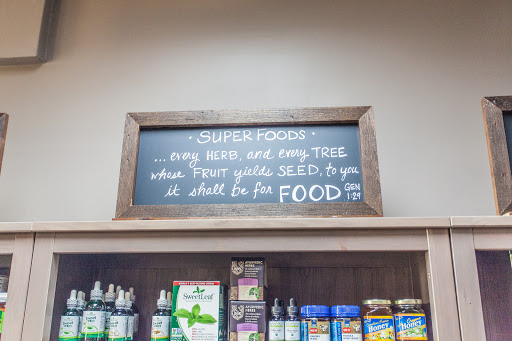 · SUPER FOODS ·
... every HERB, and every TREE
whose FRUIT yields SEED, to you
it shall be for FOOD GEN
1:29
AYURVEDIC
HERBS
SWEETLEAF
Honey